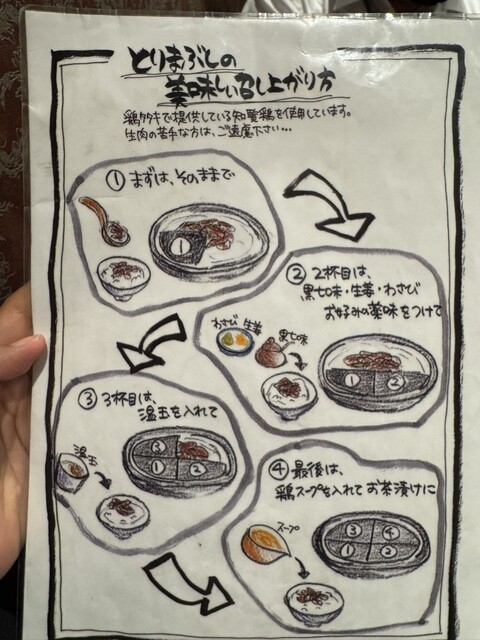 とりまぶしの
美味しい召し上がり方
鶏タタキで提供している知覧鶏を使用しています。
生肉の苦手な方は、ご遠慮下さい…
① まずは、そのままで
①
② 2杯目は、
黒七味・生姜・わさび
お好みの薬味をつけて
わさび 生姜 黒七味
① ②
③ 3杯目は、
温玉を入れて
温玉
③
① ②
④ 最後は、
鶏スープを入れてお茶漬けに
スープ
③ ④
① ②